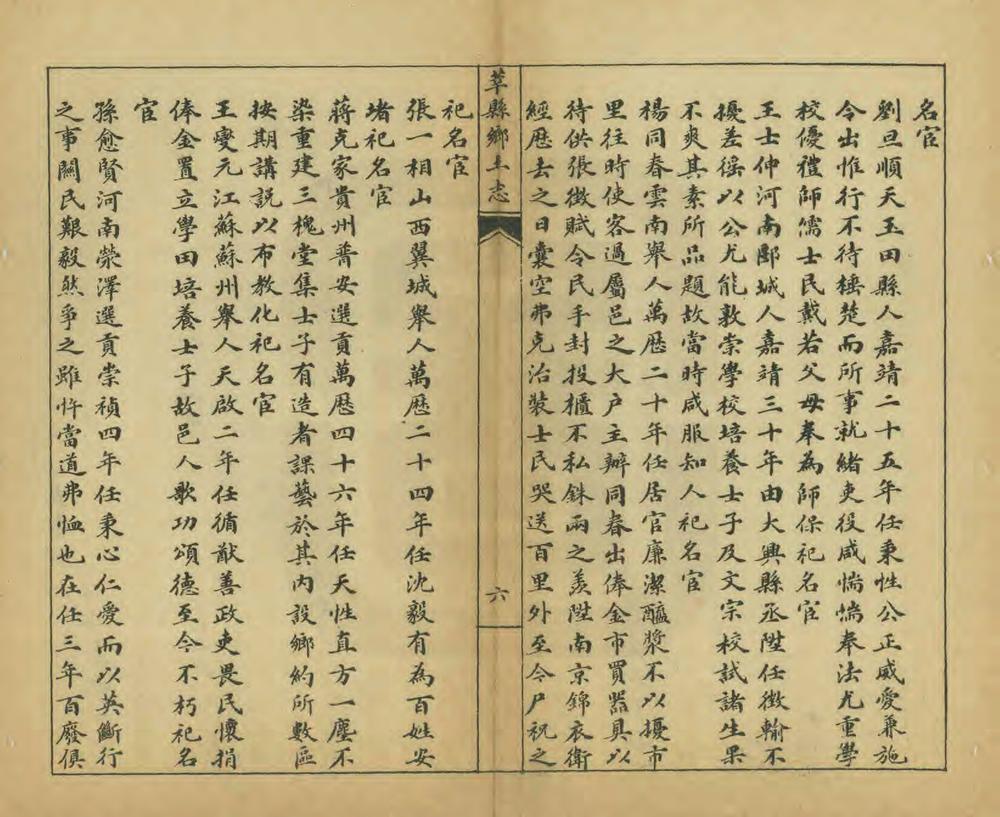 名宦
劉旦順天玉田縣人嘉靖二十五年任秉性公正威愛兼施
令出惟行不待棰楚而所事就緒吏役咸惴惴奉法尤重學
校優禮師儒士民戴若父母奉為師保祀名宦
王士仲河南郾城人嘉靖三十年由大興縣丞陞任徵輸不
擾差徭以公尤能敦崇學校培養士子及文宗校試諸生果
不爽其素所品題故當時咸服知人祀名宦
楊同春雲南舉人萬歷二十年任居官廉潔醯漿不以擾市
里往時使客過屬邑之大戶主辦同春出俸金市買器具以
待供張徵賦令民手封投櫃不私銖兩之羨陞南京錦衣衛
經歷去之日囊空弗克治裝士民哭送百里外至今尸祝之
莘縣鄉土志
六
祀名宦
張一相山西翼城舉人萬歷二十四年任沈毅有為百姓安
堵祀名宦
蔣克家貴州普安選貢萬歷四十六年任天性直方一塵不
染重建三槐堂集士子有造者課藝於其內設鄉約所數區
按期講說以布教化祀名宦
王燮元江蘇蘇州舉人天啟二年任循猷善政吏畏民懷捐
俸金置立學田培養士子故邑人歌功頌德至今不朽祀名
宦
孫愈賢河南滎澤選貢崇禎四年任秉心仁愛而以英斷行
之事關民艱毅然爭之雖忤當道弗恤也在任三年百廢俱